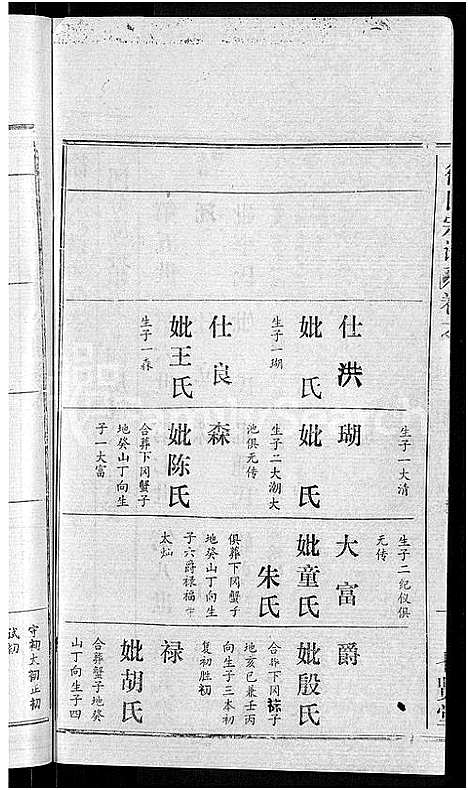 仕洪
妣 氏
生子一瑚
仕良
妣王氏
生子一森
生子一大清
瑚
妣 氏
生子二大潮大
池俱无传
森
妣陈氏
合葬下冈蟹子
地癸山丁向生
子一大富
生子二纪仪俱
无传
大富
妣童氏
朱氏
俱葬下冈蟹子
地癸山丁向生
子六爵禄福
太灿
爵
妣殷氏
合葬下冈粽子
地亥巳兼壬丙
向生子三本初
复初胜初
禄
妣胡氏
合葬蟹子地癸
山丁向生子四
守初太初正初
试初